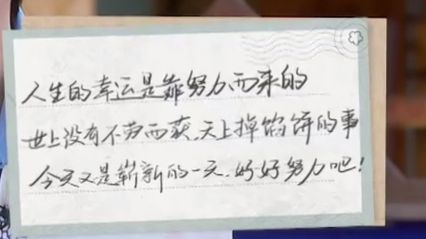 人生的幸运是靠努力而来的
世上没有不劳而获.天上掉馅饼的事
今天又是崭新的一天.好好努力吧!